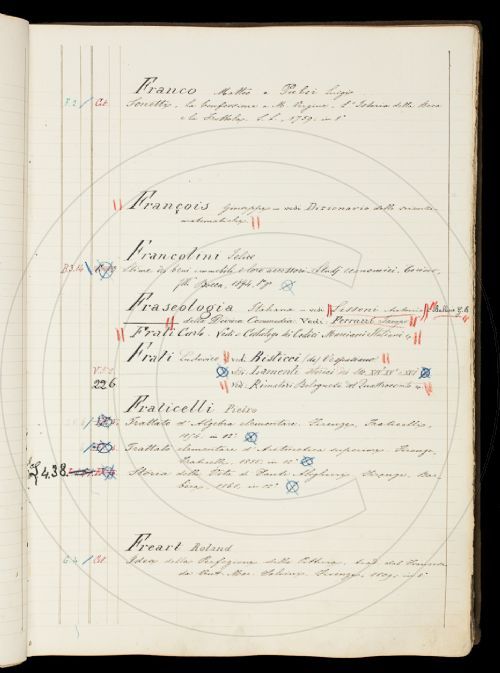 F.2 / Cat. Franco Matteo e Pulci Luigi
Sonetti, la confessione a M. Vergine, l'Istoria della Beca
e la Frottola. S. L., 1759. in 8°
François Giuseppe — vedi Dizionario delle scienze
matematiche
Francolini Felice
B.3.14 / Stime dei beni immobili e loro accessori. Studj economici. Torino,
flli Bocca, 1894. 8°
Fraseologia Italiana — vedi Lissoni Antonio Ballesio G.B.
della Divina Commedia. Vedi Perrazzi Jacopo
Frati Carlo. Vedi — Catalogo di Codici Marciani Italiani
Frati Ludovico vedi Bisticci (da) Vespasiano
226 vedi Lamenti storici dei Sec. XIV XV e XVI
vedi Rimatori Bolognesi del Quattrocento
Fraticelli Pietro
Trattato d'Algebra elementare. Firenze, Fraticelli,
in 12°
Trattato elementare d'Aritmetica superiore. Firenze,
Fraticelli, in 12°
438. Storia della Vita di Dante Alighieri. Firenze, Bar-
bèra, in 12°
Freart Roland
G.4 / Cat. Idea della Perfezione della Pittura, trad. dal Francese
da Ant. Mar. Salvini. Firenze, 1809, in 8°